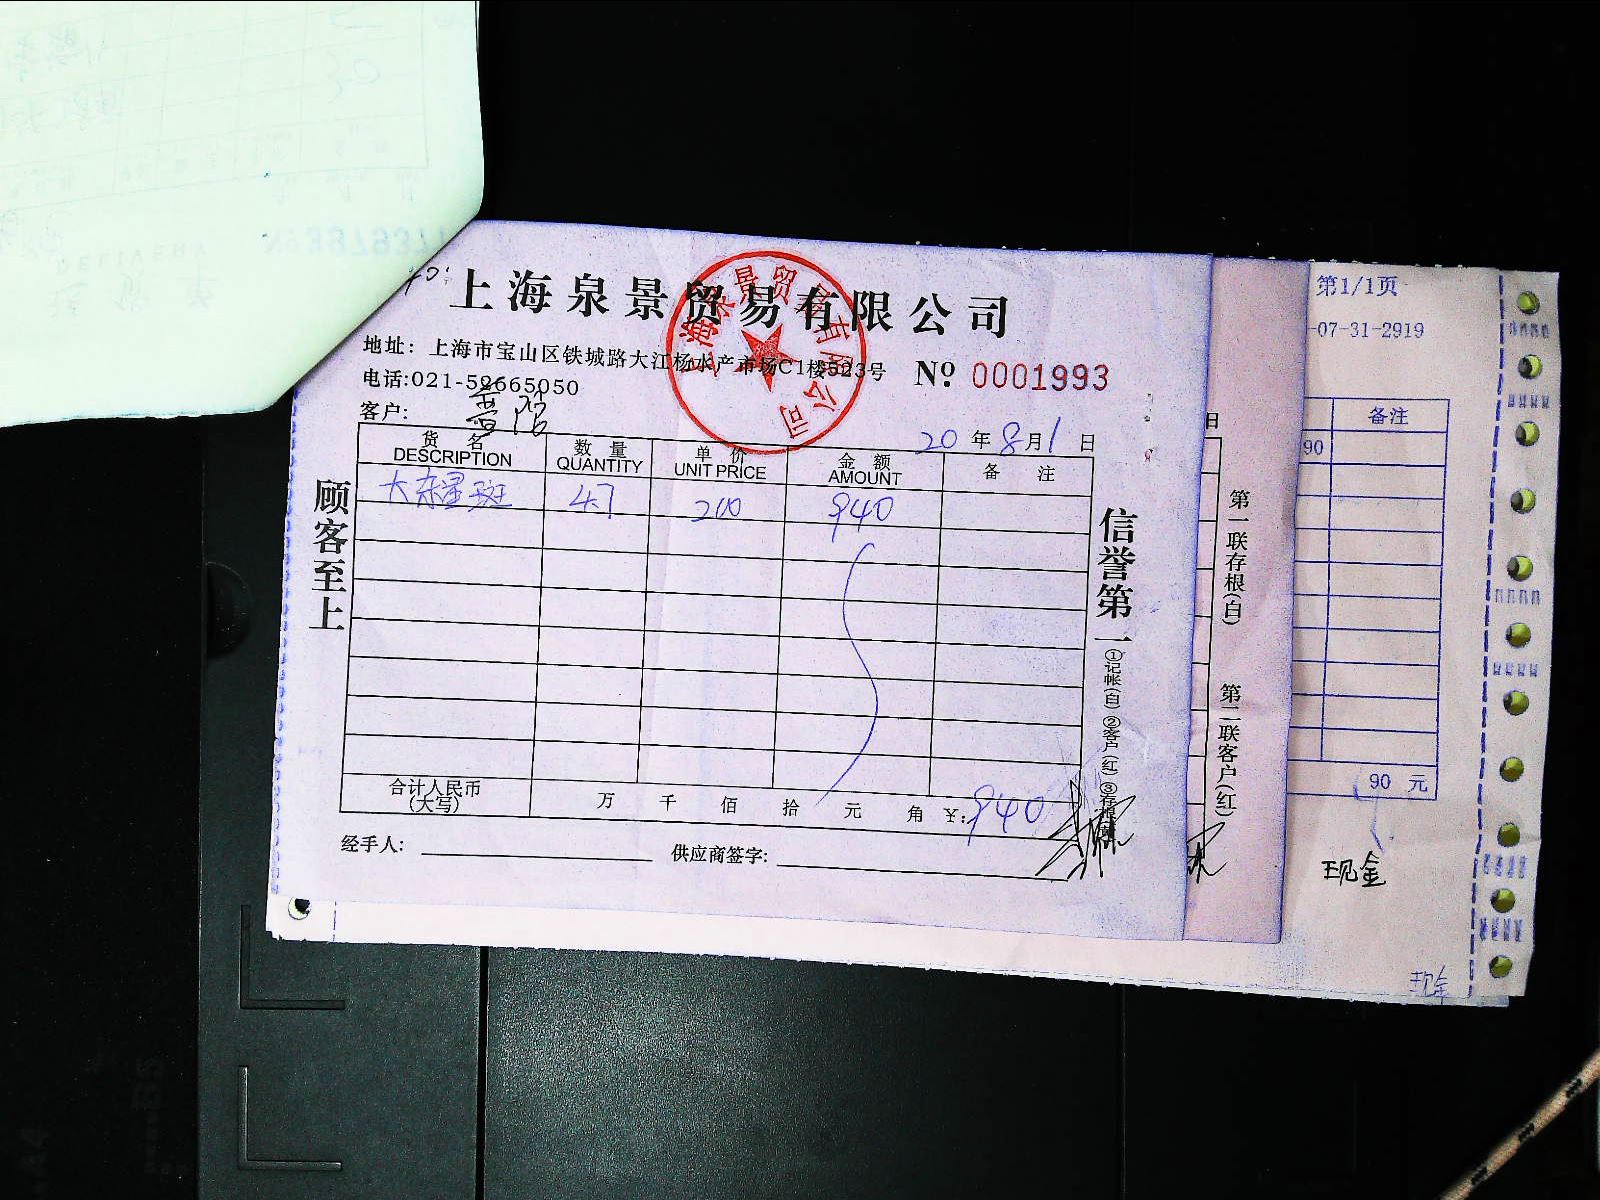 上海泉景贸易有限公司
地址：上海市宝山区铁城路大江杨水产市场C1楼523号
No. 0001993
电话:021-52665050
客户:
20 年 8 月 1 日
货名 数量 单价 金额 备注
DESCRIPTION QUANTITY UNIT PRICE AMOUNT
4.7 200 940
顾客至上
信誉第一
①记帐(白)②客户(红)③存根
合计人民币
(大写)
万 仟 佰 拾 元 角 ¥:940
经手人:
供应商签字:
日
第一联存根(白)
第二联客户(红)
第1/1页
-07-31-2919
备注
90
90 元
现金
现金
DELIVERY